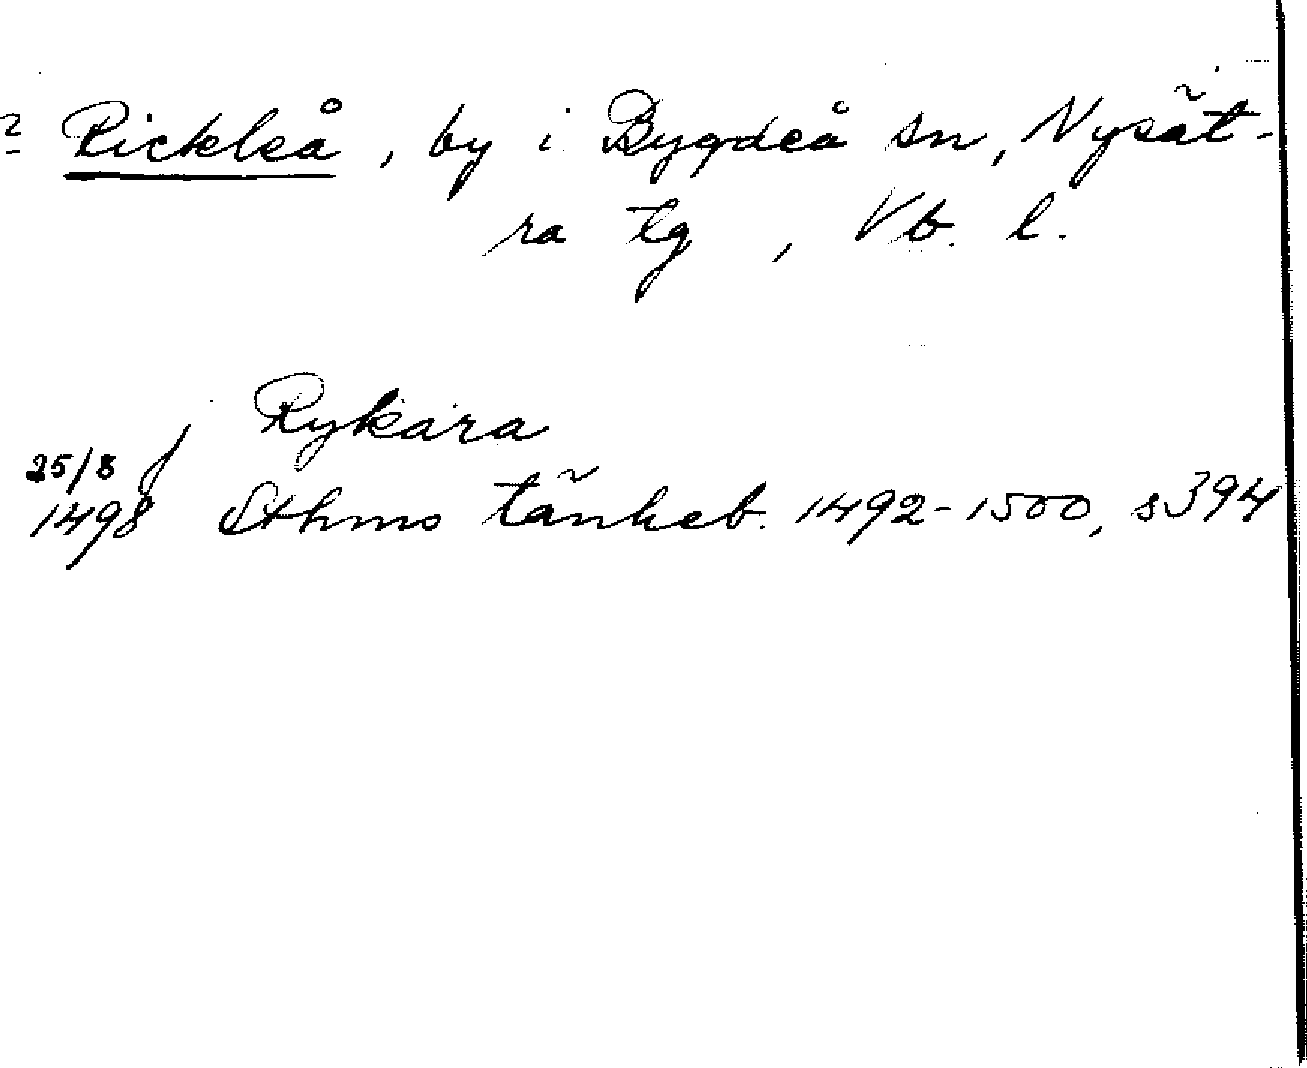 ? Rickleå, by i Bygdeå sn, Nysät-
ra tg, Vb. l.
Rykara
25/8
1498 Sthms tänkeb. 1492-1500, s 394